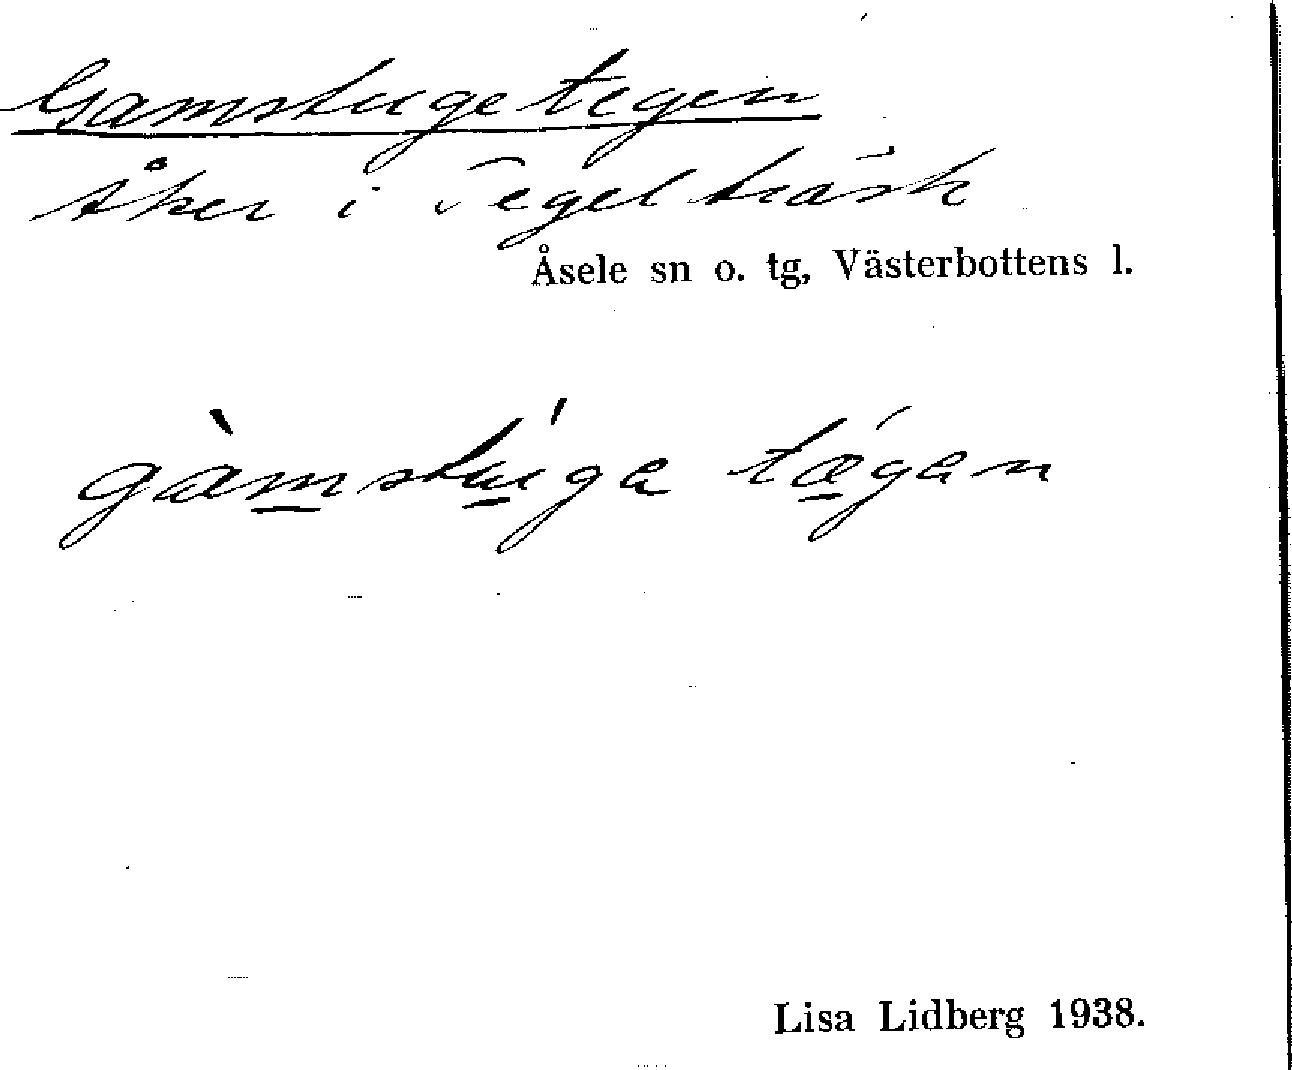 Gamstugetegen
åker i Tegelträsk
Åsele sn o. tg, Västerbottens l.
gàmstú̲ga tǽ̲gan
Lisa Lidberg 1938.